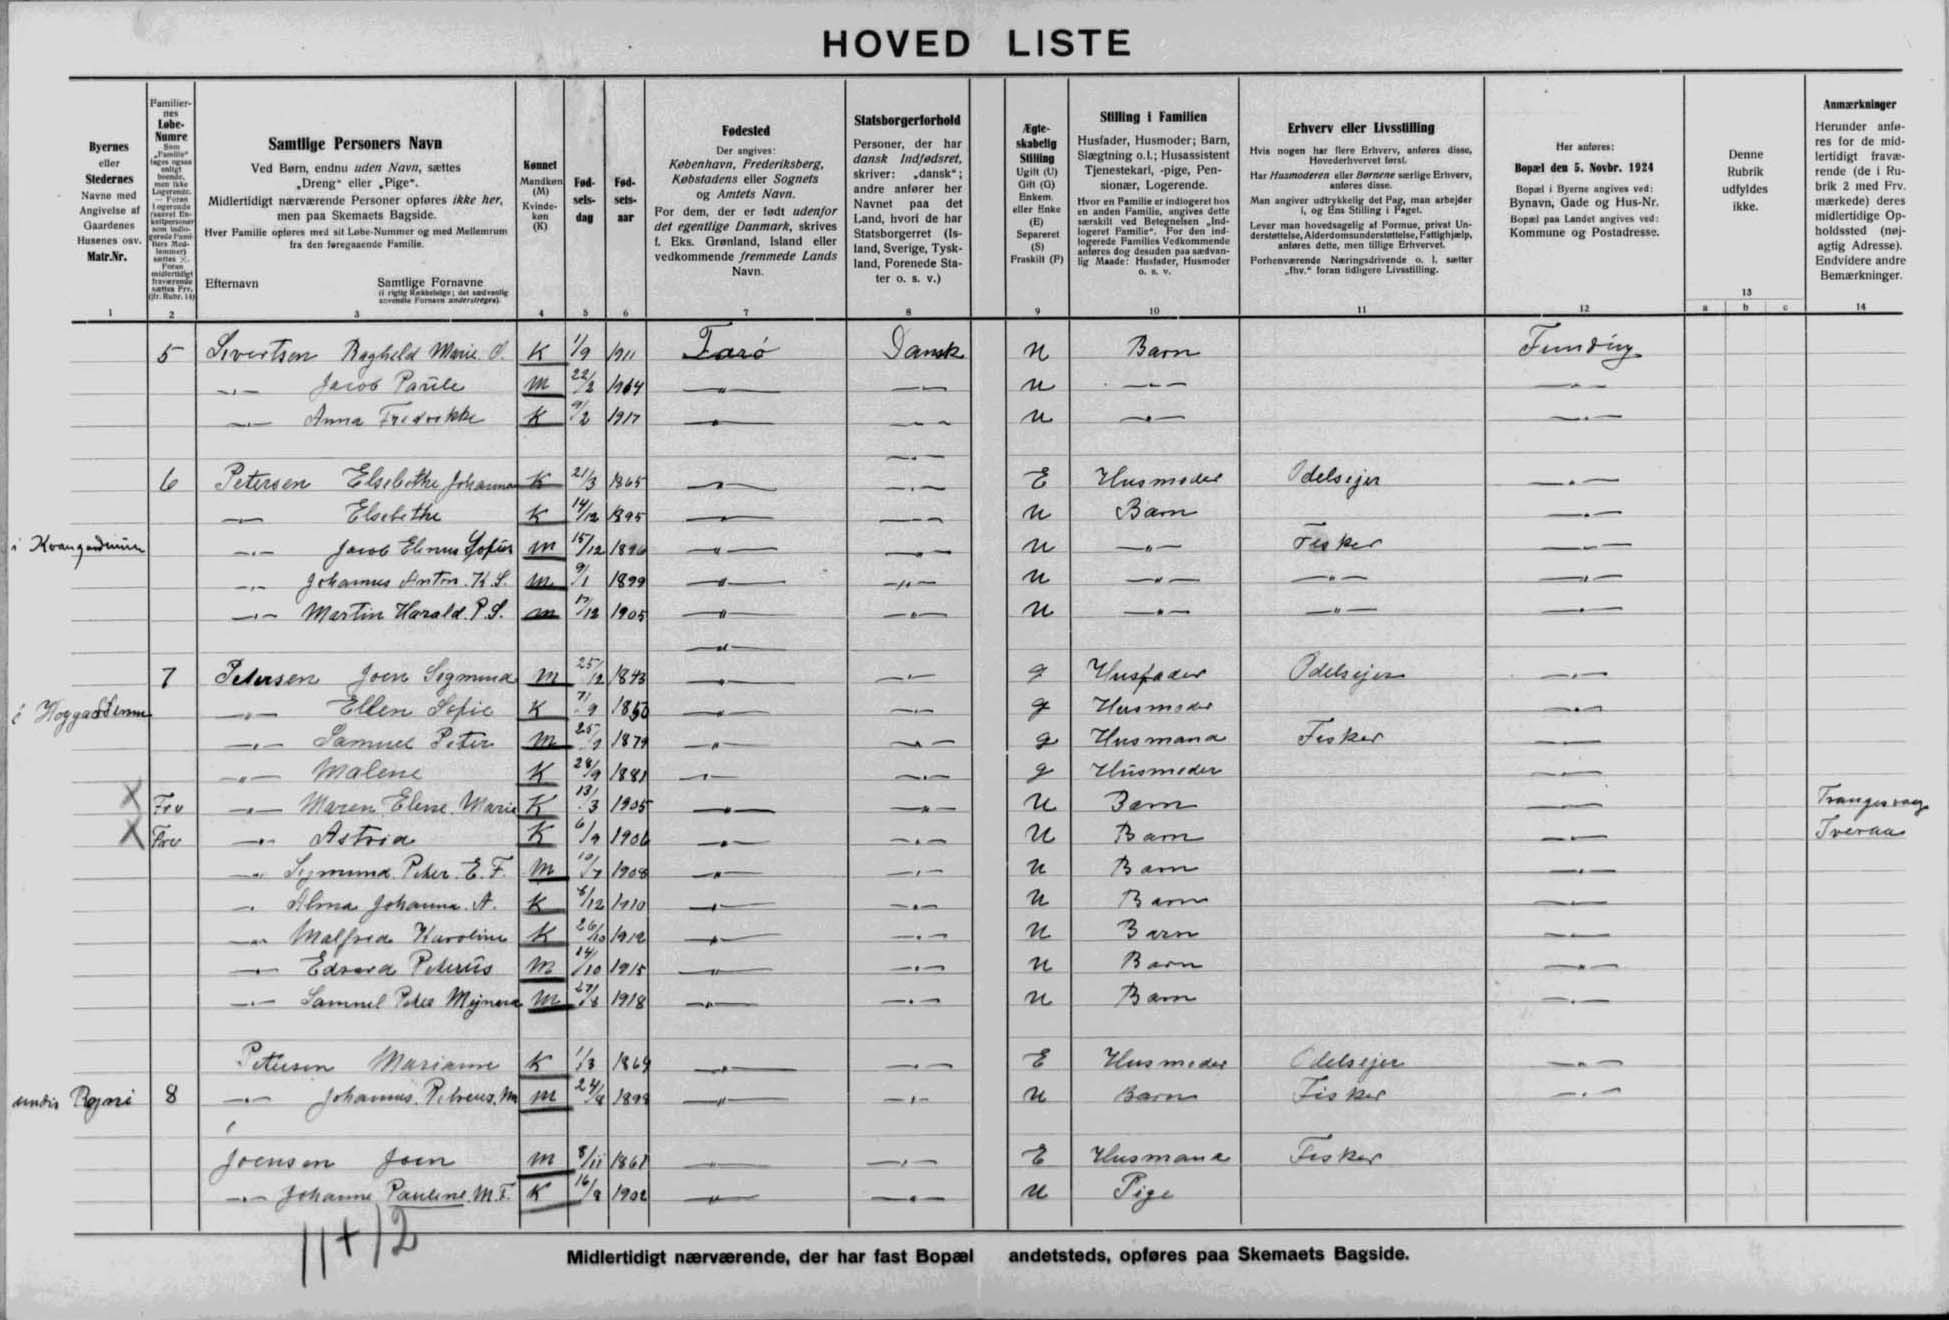 HOVED LISTE
Byernes
eller
Stedernes
Navne med
Angivelse af
Gaardenes
Husenes osv.
Matr.Nr.
Familier-
nes
Løbe-
Numre
Samtlige Personers Navn
Ved Børn, endnu uden Navn, sættes
„Dreng“ eller „Pige“.
Midlertidigt nærværende Personer opføres ikke her,
men paa Skemaets Bagside.
Hver Familie opføres med sit Løbe-Nummer og med Mellemrum
fra den foregaaende Familie.
Efternavn Samtlige Fornavne
(i rigtig Rækkefølge; det sædvanlig
anvendte Fornavn understreges).
Kønnet
Mandkøn
(M)
Kvinde-
køn
(K)
Fød-
sels-
dag
Fød-
sels-
aar
Fødested
Der angives:
København, Frederiksberg,
Købstadens eller Sognets
og Amtets Navn.
For dem, der er født udenfor
det egentlige Danmark, skrives
f. Eks. Grønland, Island eller
vedkommende fremmede Lands
Navn.
Statsborgerforhold
Personer, der har
dansk Indfødsret,
skriver: „dansk“;
andre anfører her
Navnet paa det
Land, hvori de har
Statsborgerret (Is-
land, Sverige, Tysk-
land, Forenede Sta-
ter o. s. v.)
Ægte-
skabelig
Stilling
Ugift (U)
Gift (G)
Enkem.
eller Enke
(E)
Separeret
(S)
Fraskilt (F)
Stilling i Familien
Husfader, Husmoder; Barn,
Slægtning o.l.; Husassistent
Tjenestekarl, -pige, Pen-
sionær, Logerende.
Hvor en Familie er indlogeret hos
en anden Familie, angives dette
særskilt ved Betegnelsen „Ind-
logeret Familie“. For den ind-
logerede Families Vedkommende
anføres dog desuden paa sædvan-
lig Maade: Husfader, Husmoder
o. s. v.
Erhverv eller Livsstilling
Hvis nogen har flere Erhverv, anføres disse,
Hovederhvervet først.
Har Husmoderen eller Børnene særlige Erhverv,
anføres disse.
Man angiver udtrykkelig det Fag, man arbejder
i, og Ens Stilling i Faget.
Lever man hovedsagelig af Formue, privat Un-
derstøttelse, Alderdomsunderstøttelse, Fattighjælp,
anføres dette, men tillige Erhvervet.
Forhenværende Næringsdrivende o. l. sætter
„fhv.“ foran tidligere Livsstilling.
Her anføres:
Bopæl den 5. Novbr. 1924
Bopæl i Byerne angives ved:
Bynavn, Gade og Hus-Nr.
Bopæl paa Landet angives ved:
Kommune og Postadresse.
Denne
Rubrik
udfyldes
ikke.
Anmærkninger
Herunder anfø-
res for de mid-
lertidigt fravæ-
rende (de i Ru-
brik 2 med Frv.
mærkede) deres
midlertidige Op-
holdssted (nøj-
agtig Adresse).
Endvidere andre
Bemærkninger.
1 2 3 4 5 6 7 8 9 10 11 12 13 a b c 14
5 Sivertsen Ragheld Marie O. K 1/9 1911 Farø Dansk U Barn Funding
—"— Jacob Paule M 22/2 1914 —"— —"— U —"— —"—
—"— Anna Fredrikke K 9/2 1917 —"— —"— U —"— —"—
6 Petersen Elsebethe Johanna K 21/3 1865 —"— —"— E Husmoder Odelsejer —"—
—"— Elsebethe K 14/12 1895 —"— —"— U Barn —"—
—"— Jacob Elenus Sofus M 15/12 1896 —"— —"— U —"— Fisker —"—
—"— Johannes Anton K. S. M 9/1 1899 —"— —"— U —"— —"— —"—
—"— Martin Harald P. S. M 17/12 1905 —"— —"— U —"— —"— —"—
7 Petersen Joen Sigmund M 25/12 1843 —"— —"— G Husfader Odelsejer —"—
—"— Ellen Sofie K 9 1850 —"— —"— G Husmoder —"—
—"— Samuel Peter M 25 1879 —"— —"— G Husmand Fisker —"—
—"— Malene K 28/9 1881 —"— —"— G Husmoder —"—
X Frv —"— Maren Elene Marie K 13/3 1905 —"— —"— U Barn —"— Trangisvaag
X Frv —"— Astrid K 6/9 1906 —"— —"— U Barn —"— Tveraa
—"— Sigmund Peter E. F. M 10/7 1908 —"— —"— U Barn —"—
—"— Alma Johanna A. K 8/12 1910 —"— —"— U Barn —"—
—"— Malfred Karoline K 26/10 1912 —"— —"— U Barn —"—
—"— Edvard Peterus M 24/10 1915 —"— —"— U Barn —"—
—"— Samuel Peter Mejnerd M 27/8 1918 —"— —"— U Barn —"—
Petersen Marianne K 1/3 1869 —"— —"— E Husmoder Odelsejer —"—
8 —"— Johannes M 24/8 1898 —"— —"— U Barn Fisker —"—
Joensen Joen M 8/11 1861 —"— —"— E Husmand Fisker
—"— Johanne Pauline M. F. K 16/8 1902 —"— —"— U Pige
11+12
Midlertidigt nærværende, der har fast Bopæl andetsteds, opføres paa Skemaets Bagside.